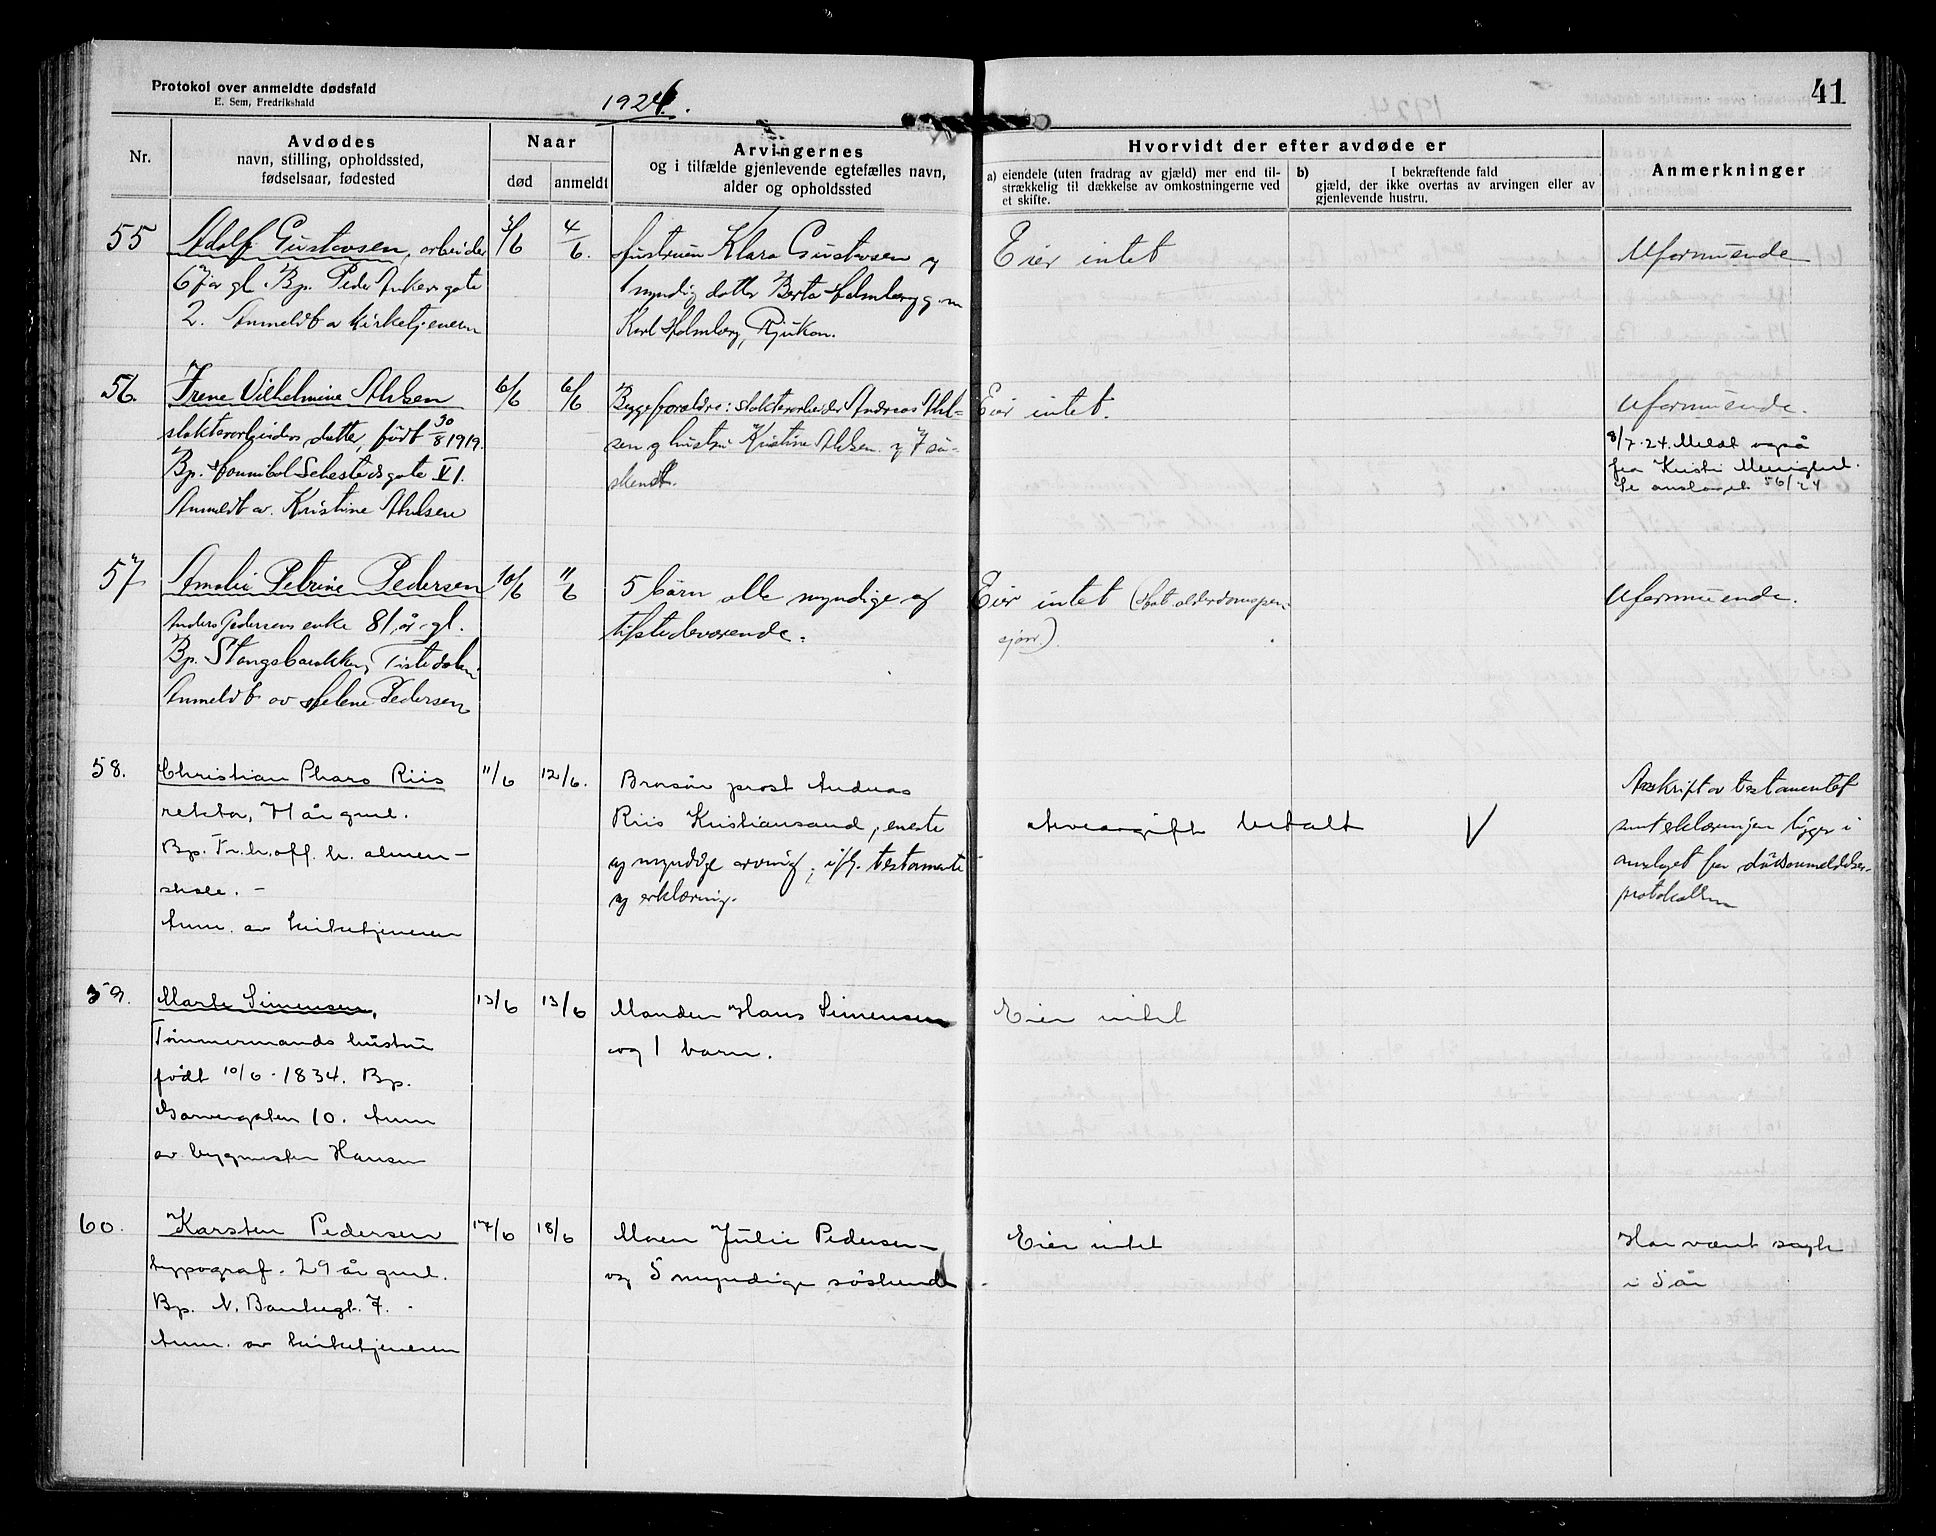 Protokol over anmeldte dødsfald
E. Sem, Fredrikshald
1924.
41
Nr.
Avdødes
navn, stilling, opholdssted,
fødselsaar, fødested
Naar
død
anmeldt
Arvingernes
og i tilfælde gjenlevende egtefælles navn,
alder og opholdssted
Hvorvidt der efter avdøde er
a) eiendele (uten fradrag av gjæld) mer end til-
strækkelig til dækkelse av omkostningerne ved
et skifte.
b) I bekræftende fald
gjæld, der ikke overtas av arvingen eller av
gjenlevende hustru.
Anmerkninger
55
Adolf Gustavsen, arbeider
67 år gl. Bp. Peder Ankers gate
2. Anmeldt a kirketjeneren
3/6
4/6.
Hustruen Klara Gustavsen og
1 myndig datter Berta Holmberg g. m
Karl Holmberg, Rjukan.
Eier intet
Uformuende
56.
Irene Vilhelmine Ahlsen
datter, født 30/8 1919.
Bp. Hannibal Sehestedsgate VI.
Anmeldt av Kristine Ahlsen
6/6
6/6
Begge forældre: Andreas Ahl-
sen og hustru Kristine Ahlsen og 7 sø-
sken.
Eier intet.
Uformuende.
8/7-24. Meldt også
fra Kristi Menighet.
Se omslaget 56/24
57
Amalie Petrine Pedersen
Anders Pedersens enke 81 år gl.
Bp. Stangebrakken, Tistedalen
Anmeldt av Helene Pedersen
10/6
11/6
5 börn alle myndige og
tilstedeværende.
Eier intet (hat alderdomspen-
sjon).
Uformuende.
58.
Christian Pharo Riis
rektor, 71 år gml.
Bp. Fr.h. off. h. almen-
skole. -
Anm. av kirketjeneren
11/6
12/6.
Brorsön prost Andreas
Riis Kristiansand, eneste
og myndige arving, ifg. testamente
og erklæring.
Arveavgift betalt
V
Avskrift av testamentet
samt erklæringen ligger i
omslaget for dödsanmeldelses-
protokollen
59.
Marte Simensen,
Tömmermands hustru
födt 10/6-1834. Bp.
Garvergaten 10. Anm
av bygmester Hansen
13/6
13/6
Manden Hans Simensen
og 1 barn.
Eier intet
60.
Karsten Pedersen
typograf. 29 år gml.
Bp. N. Bankegt. 7.
Anm. av kirketjeneren
17/6
18/6
Moren Julie Pedersen
og 5 myndige söskende
Eier intet
Har vært sagt
i 5 år